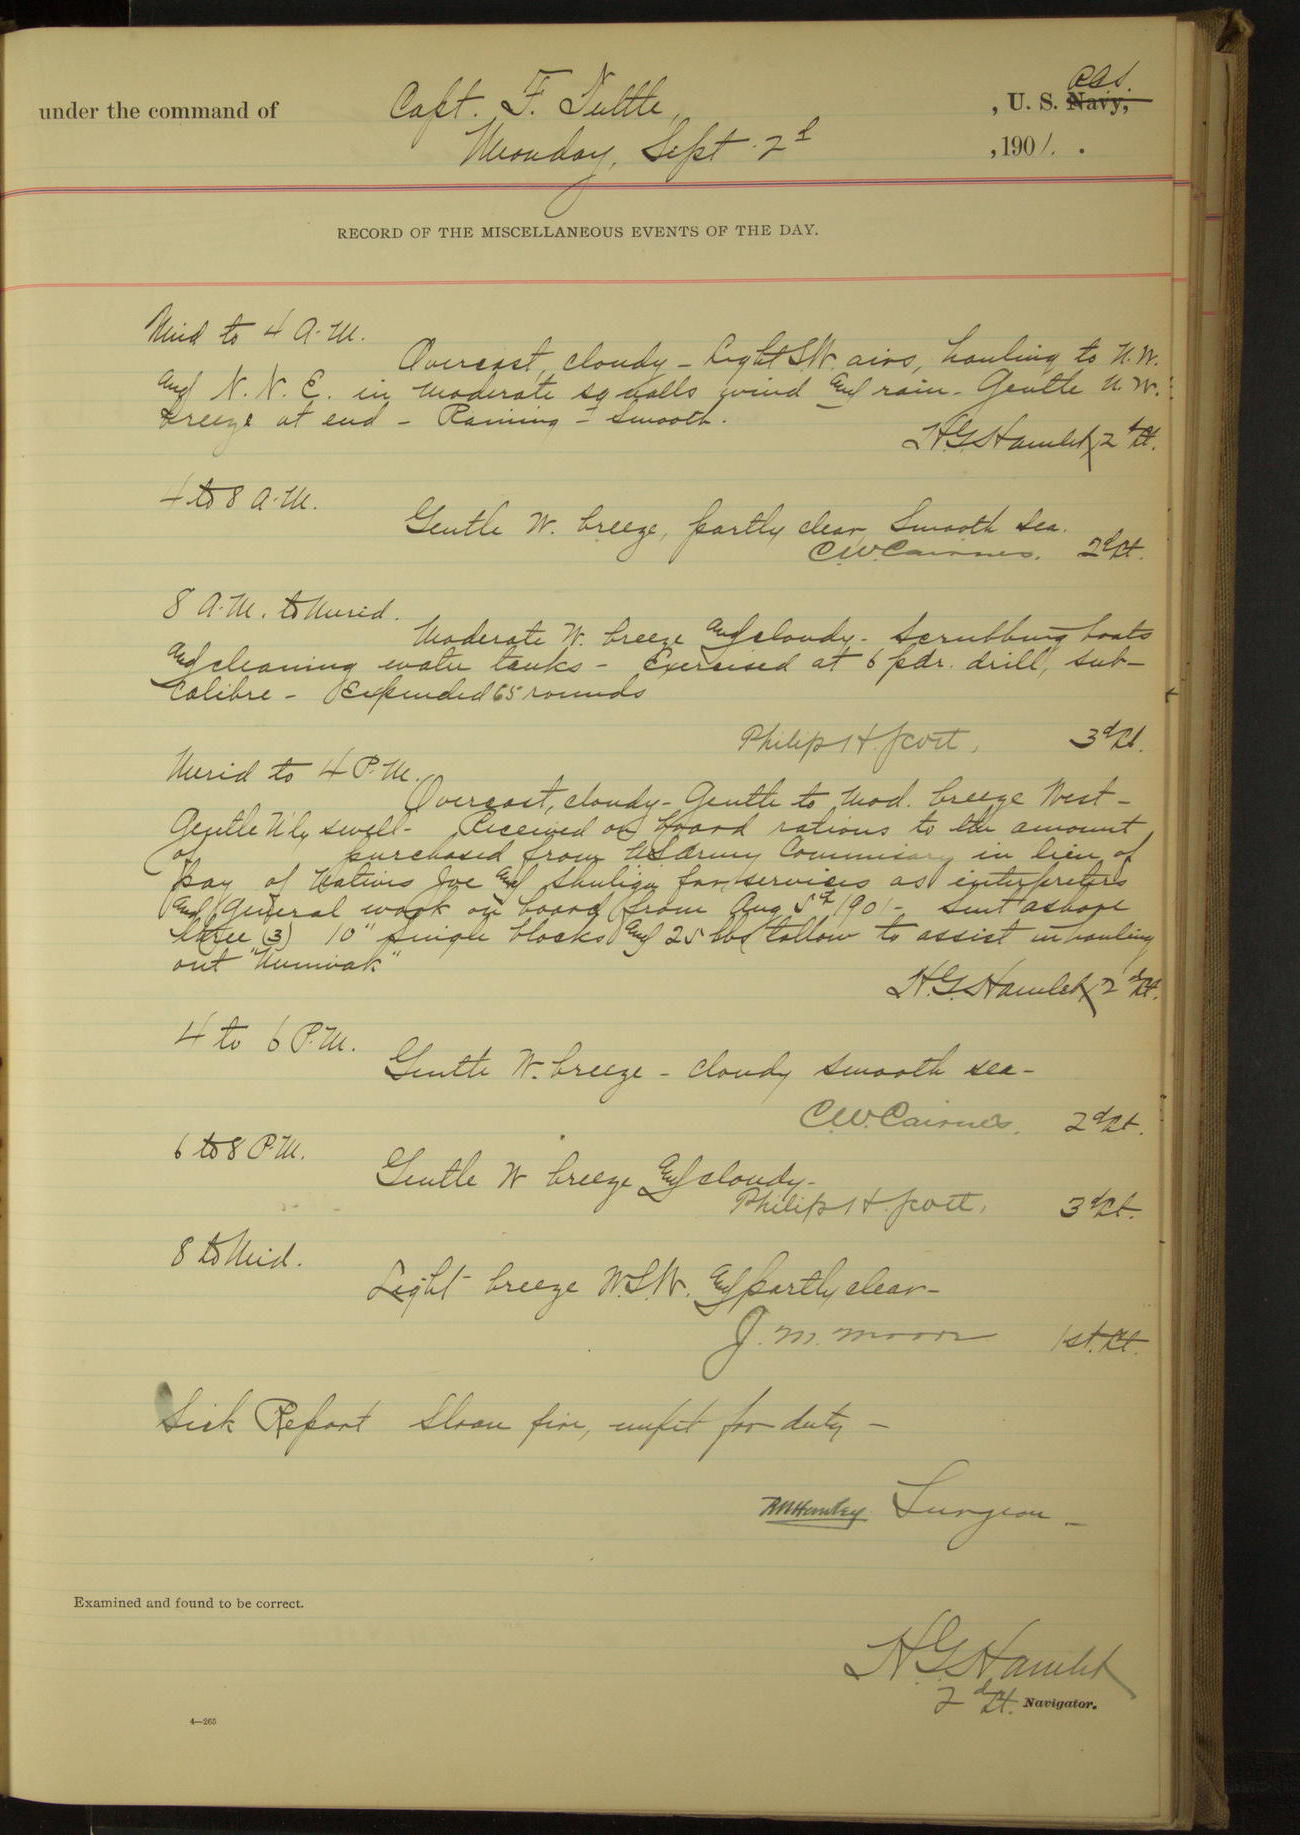 under the command of Capt. F. Tuttle, , U. S. Navy, RCS.
Monday, Sept. 2d , 1901.
RECORD OF THE MISCELLANEOUS EVENTS OF THE DAY.
Mid to 4 A.M.
Overcast, cloudy - Light S.W. airs, hauling to N.W.
and N.N.E. in moderate squalls wind and rain - Gentle N.W.
breeze at end - Raining - smooth.
H.G. Hamlet 2d Lt.
4 to 8 A.M.
Gentle W. breeze, partly clear, Smooth sea.
C.W. Cairnes. 2d Lt.
8 A.M. to Merid.
Moderate W. breeze and cloudy - Scrubbing boats
and cleaning water tanks - Exercised at 6 pdr. drill, sub-
calibre - Expended 65 rounds
Philip H. Scott, 3d Lt.
Merid to 4 P.M.
Overcast, cloudy - Gentle to Mod. breeze West -
Gentle N'ly swell - Received on board rations to the amount
of purchased from US Army Commissary in lieu of
pay of Natives Joe and for services as interpreters
and general work on board from Aug 5th 1901 - Sent ashore
three (3) 10" single blocks and 25 lbs tallow to assist in hauling
out "Nunivak"
H.G. Hamlet 2d Lt.
4 to 6 P.M.
Gentle W. breeze - cloudy smooth sea -
C.W. Cairnes. 2d Lt.
6 to 8 P.M.
Gentle W breeze and cloudy -
Philip H. Scott, 3d Lt.
8 to Mid.
Light breeze W.S.W. and partly clear -
J. M. Moore 1st. Lt.
Sick Report Sloan fire, unfit for duty -
Surgeon -
Examined and found to be correct.
H.G. Hamlet
2d Lt. Navigator.
4—265